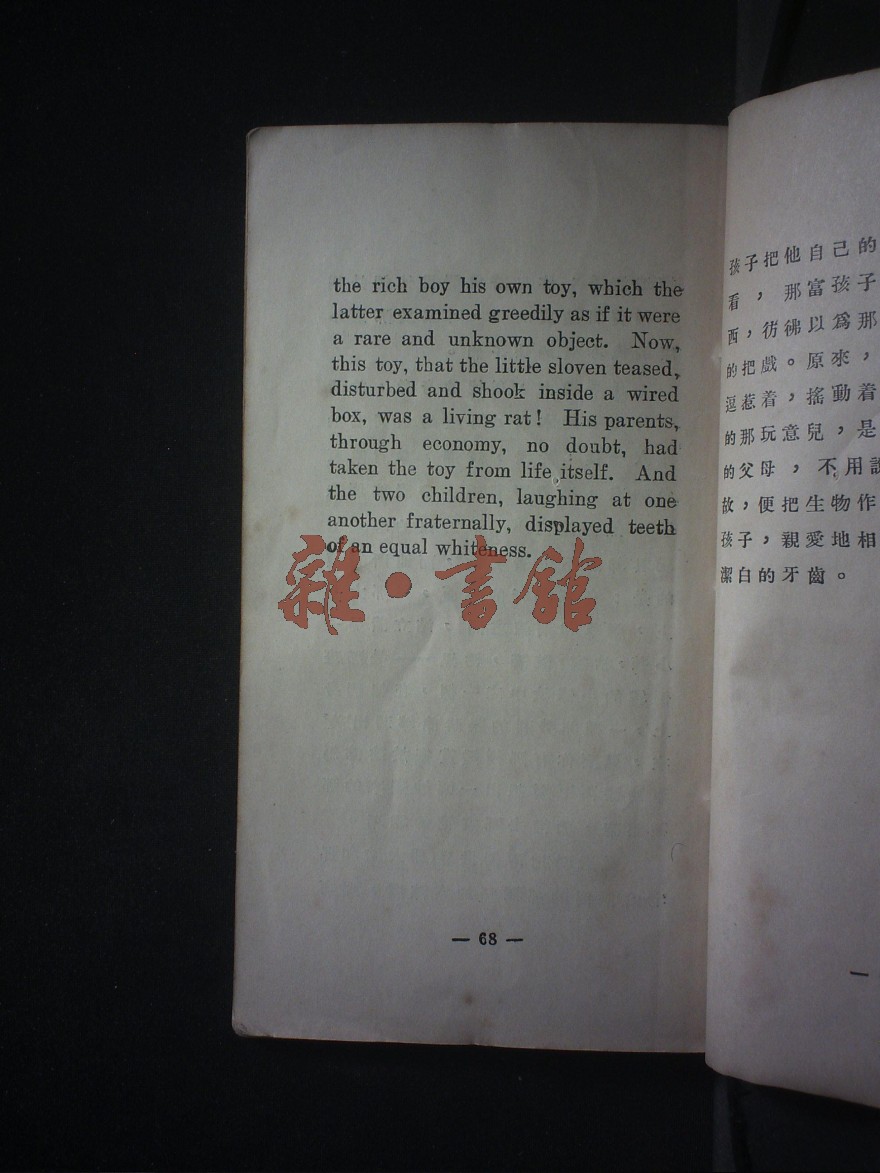 the rich boy his own toy, which the
latter examined greedily as if it were
a rare and unknown object. Now,
this toy, that the little sloven teased,
disturbed and shook inside a wired
box, was a living rat! His parents,
through economy, no doubt, had
taken the toy from life itself. And
the two children, laughing at one
another fraternally, displayed teeth
of an equal whiteness.
雜·書館
— 68 —
孩子把他自己的
看，那富孩子
西，彷彿以爲那
的把戲。原來，
逗惹着，搖動着
的那玩意兒，是
的父母，不用說
故，便把生物作
孩子，親愛地相
潔白的牙齒。